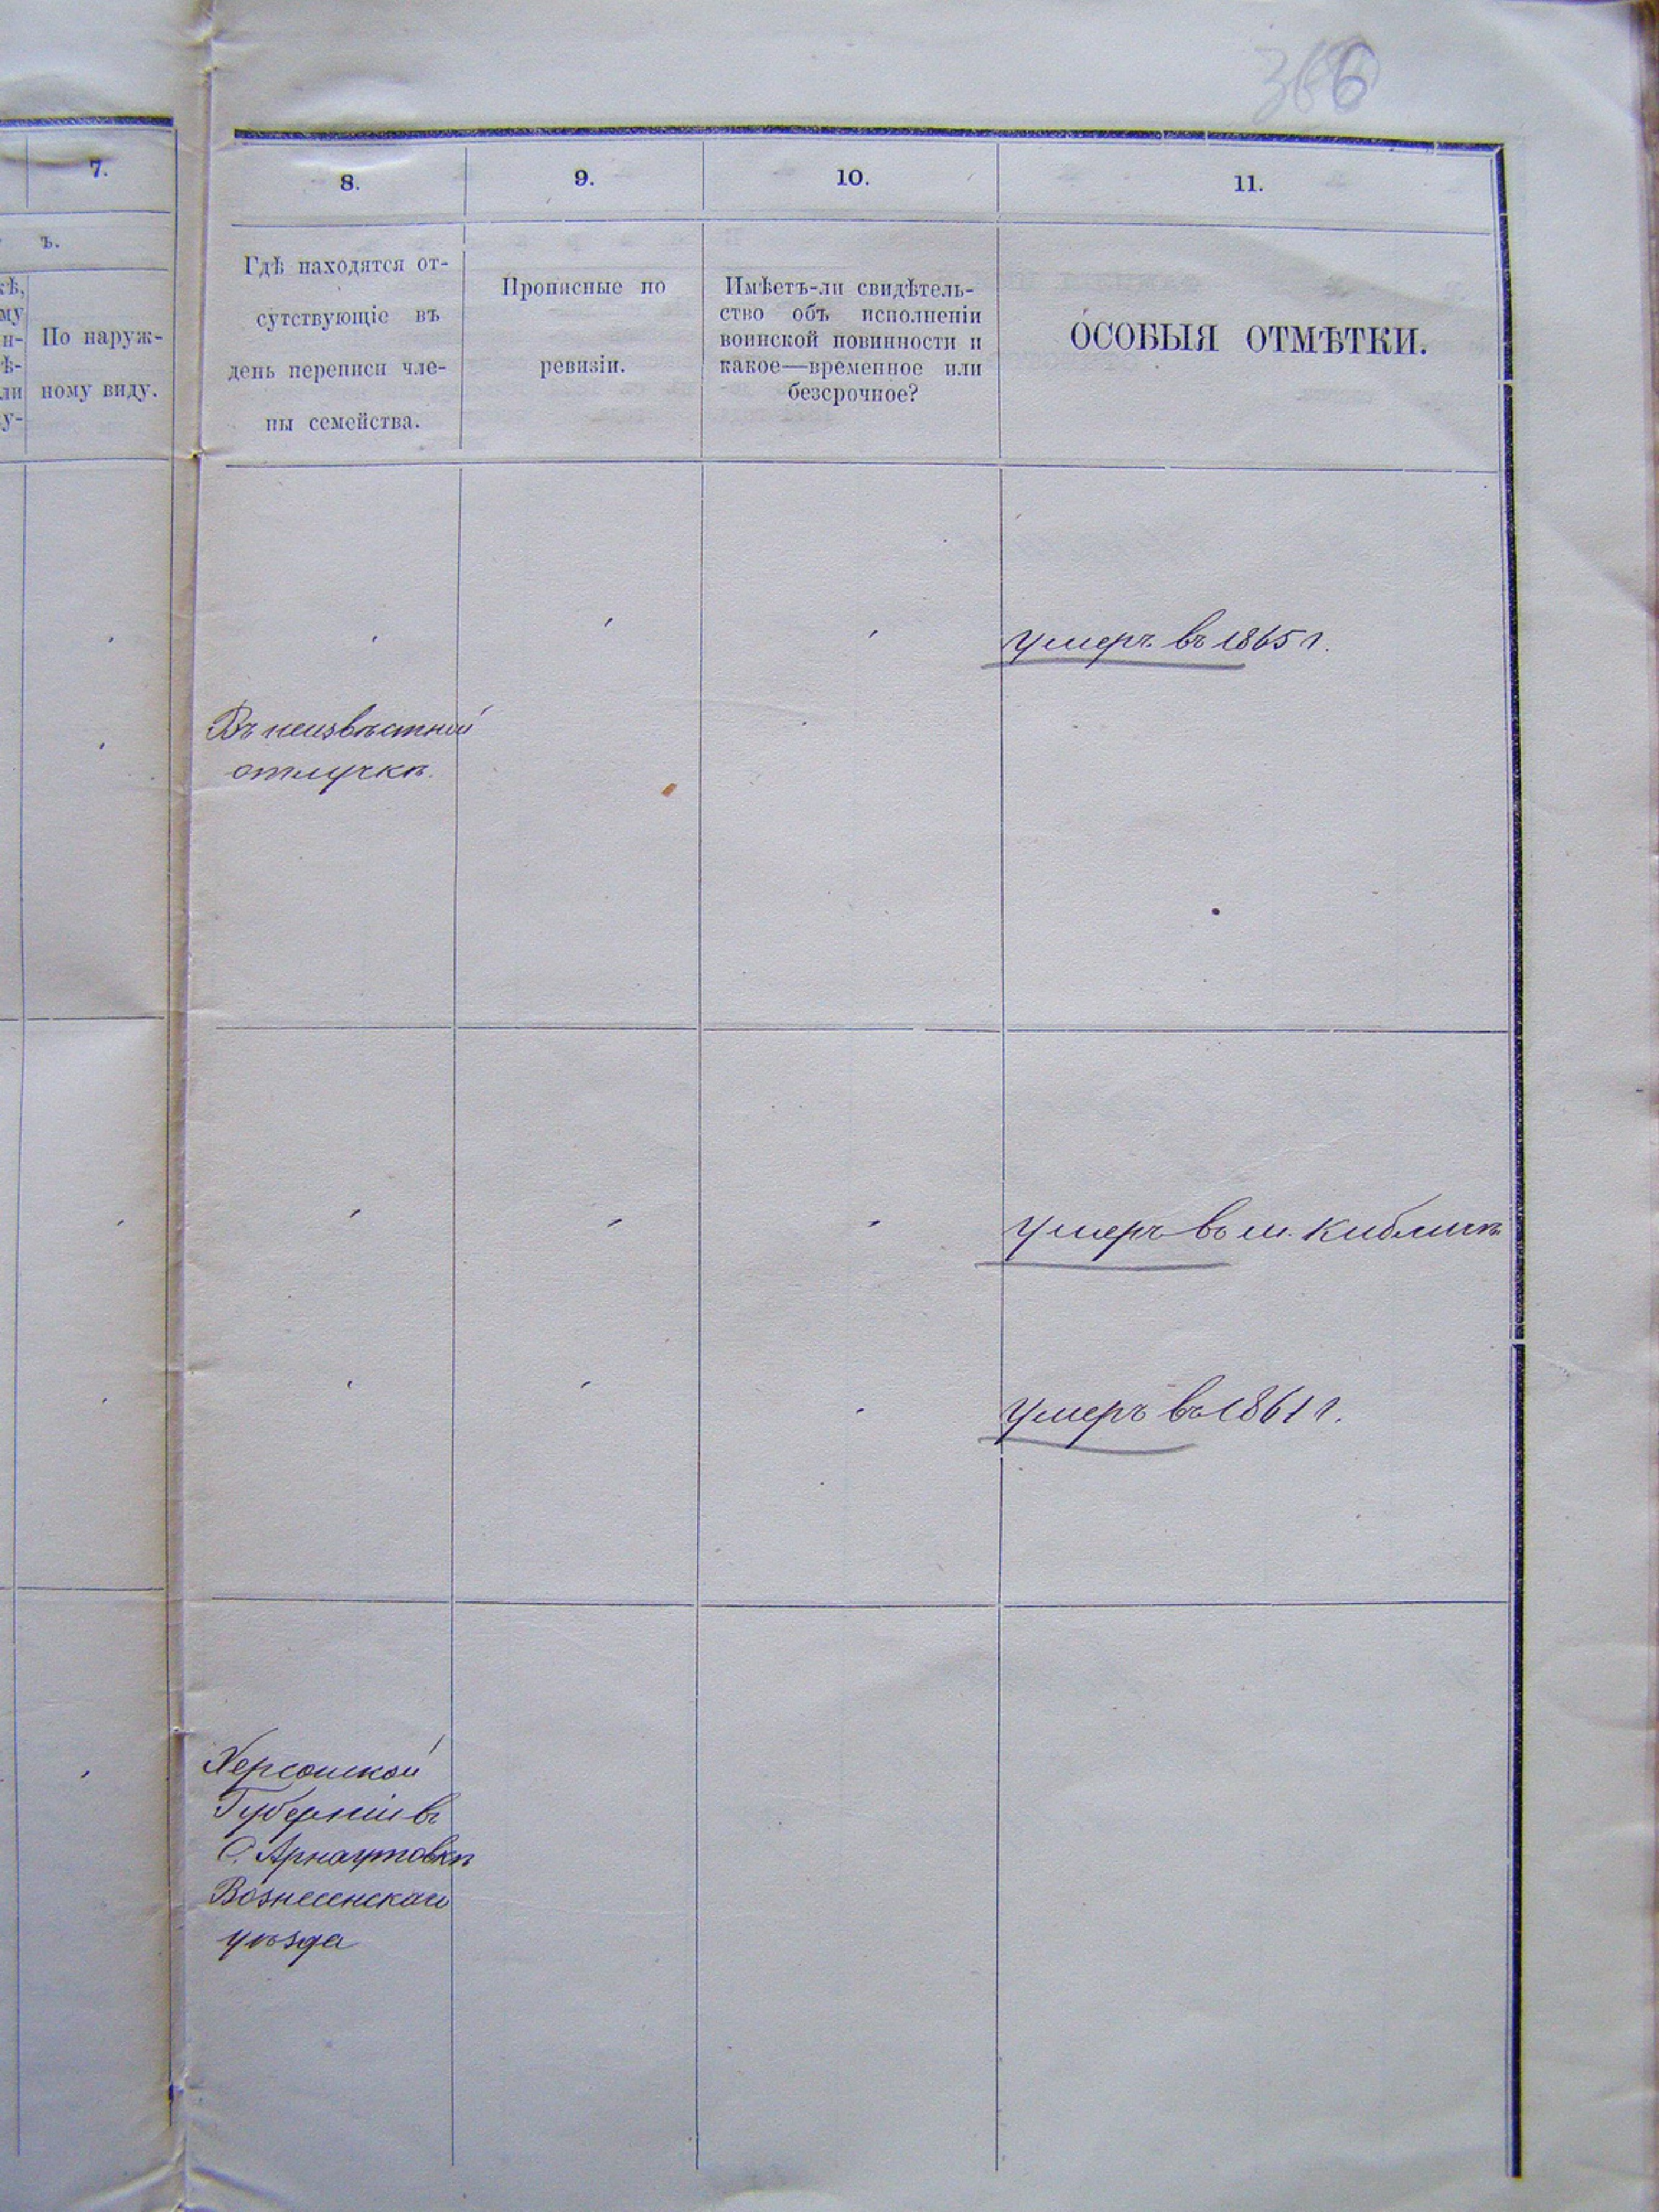 366
7.
8.
9.
10.
11.
ъ.
По наруж-
ному виду.
Гдѣ находятся от-
сутствующіе въ
день переписи чле-
ны семейства.
Прописные по
ревизіи.
Имѣетъ-ли свидѣтель-
ство объ исполненіи
воинской повинности и
какое—временное или
безсрочное?
ОСОБЫЯ ОТМѢТКИ.
умеръ въ 1865 г.
Въ неизвѣстной
отлучкѣ.
умеръ въ м. Кибличѣ
умеръ въ 1861 г.
Херсонской
Губерніи въ
С. Арнаутовкѣ
Вознесенскаго
уѣзда